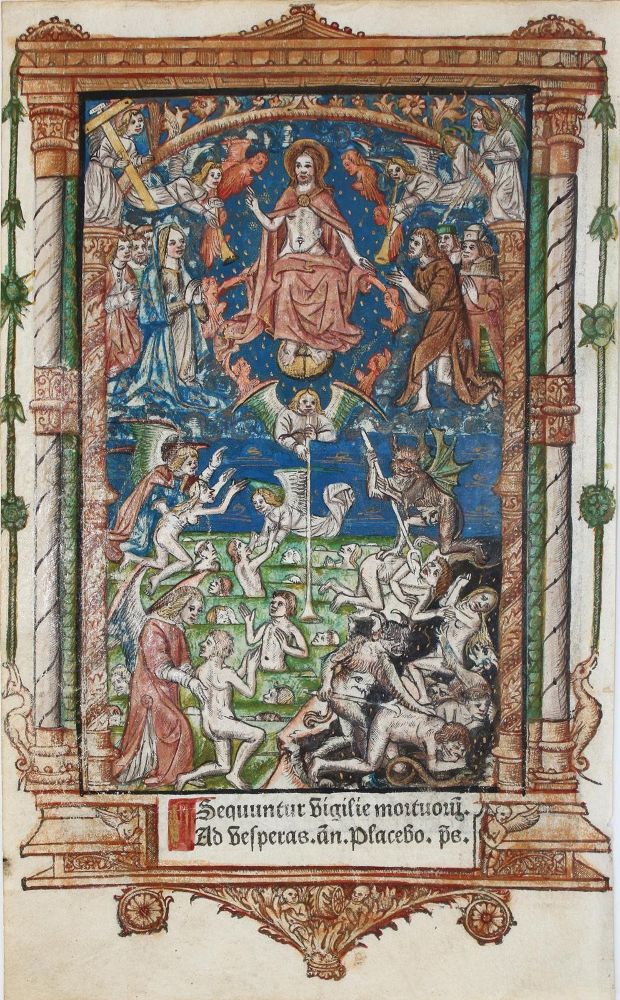 Sequuntur Vigilie mortuorū.
Ad Vesperas. añ. Placebo. p̄s.